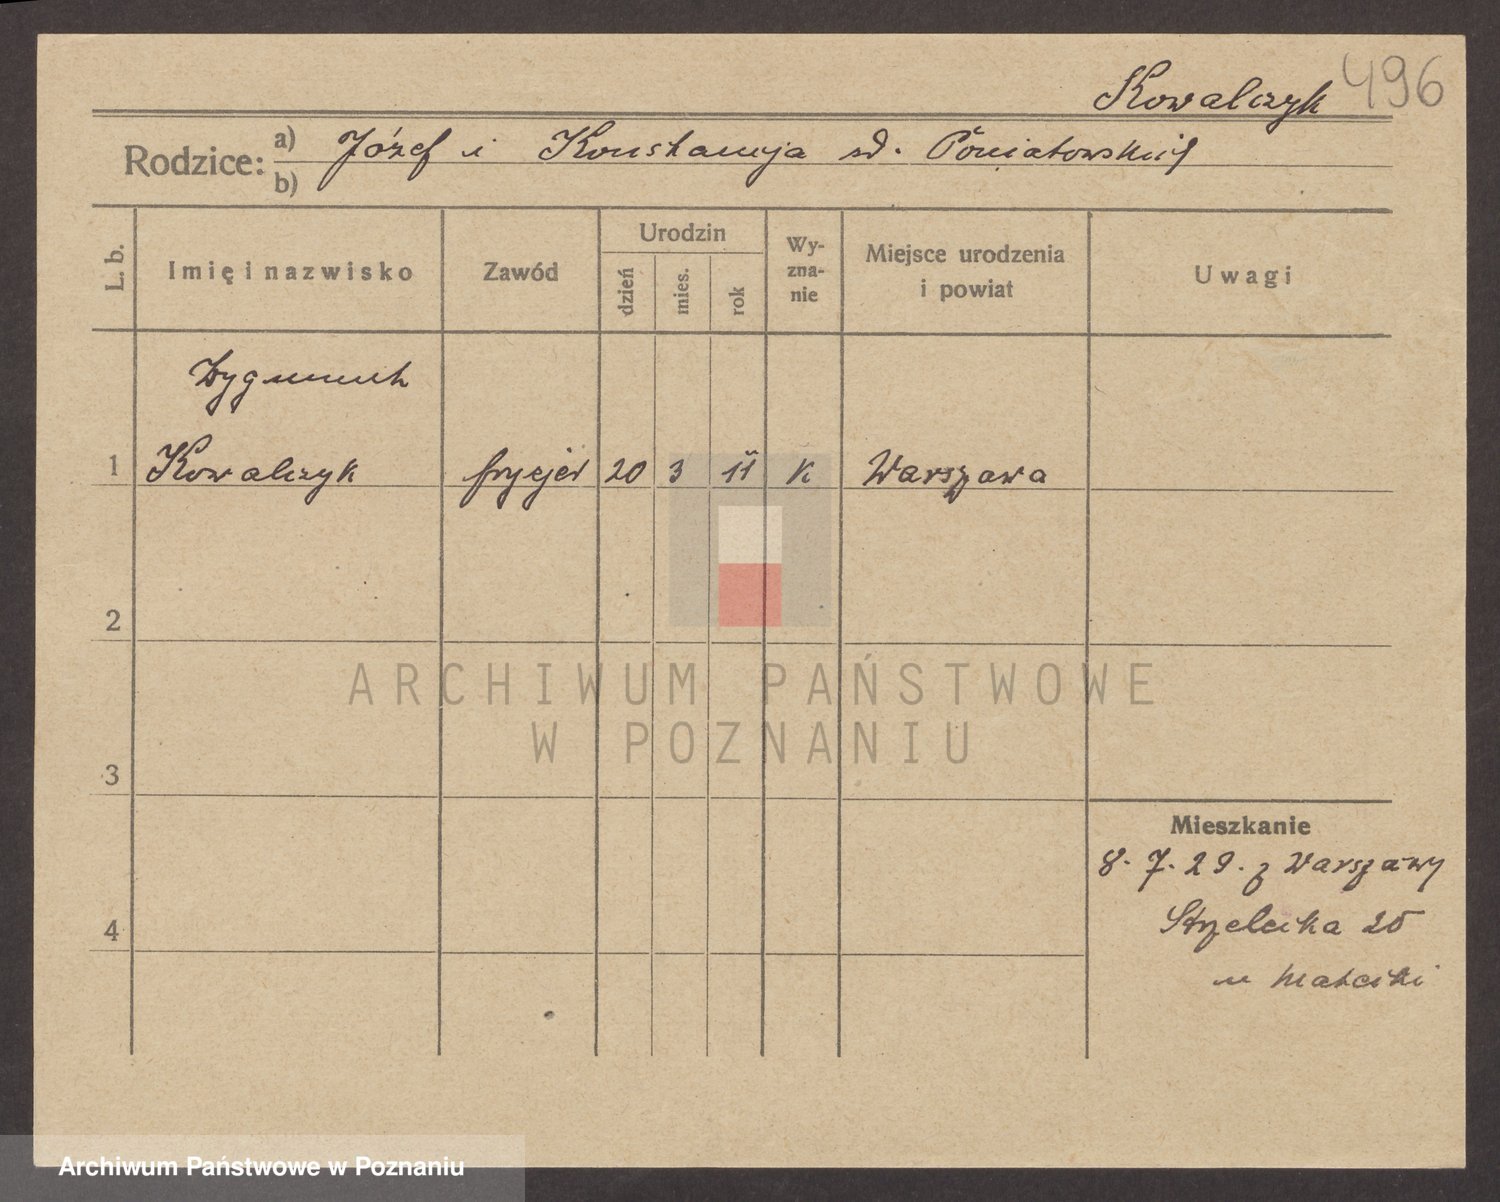 Kowalczyk 496
Rodzice: a) Józef i Konstancja z d. Poniatowskich
b)
L. b. Imię i nazwisko Zawód Urodzin dzień mies. rok Wyznanie Miejsce urodzenia i powiat Uwagi
Zygmunt
1 Kowalczyk fryzjer 20 3 11 K Warszawa
2
3
4
Mieszkanie
8. 7. 29. z Warszawy
Strzelecka 25
u Matecki
ARCHIWUM PAŃSTWOWE
W POZNANIU
Archiwum Państwowe w Poznaniu